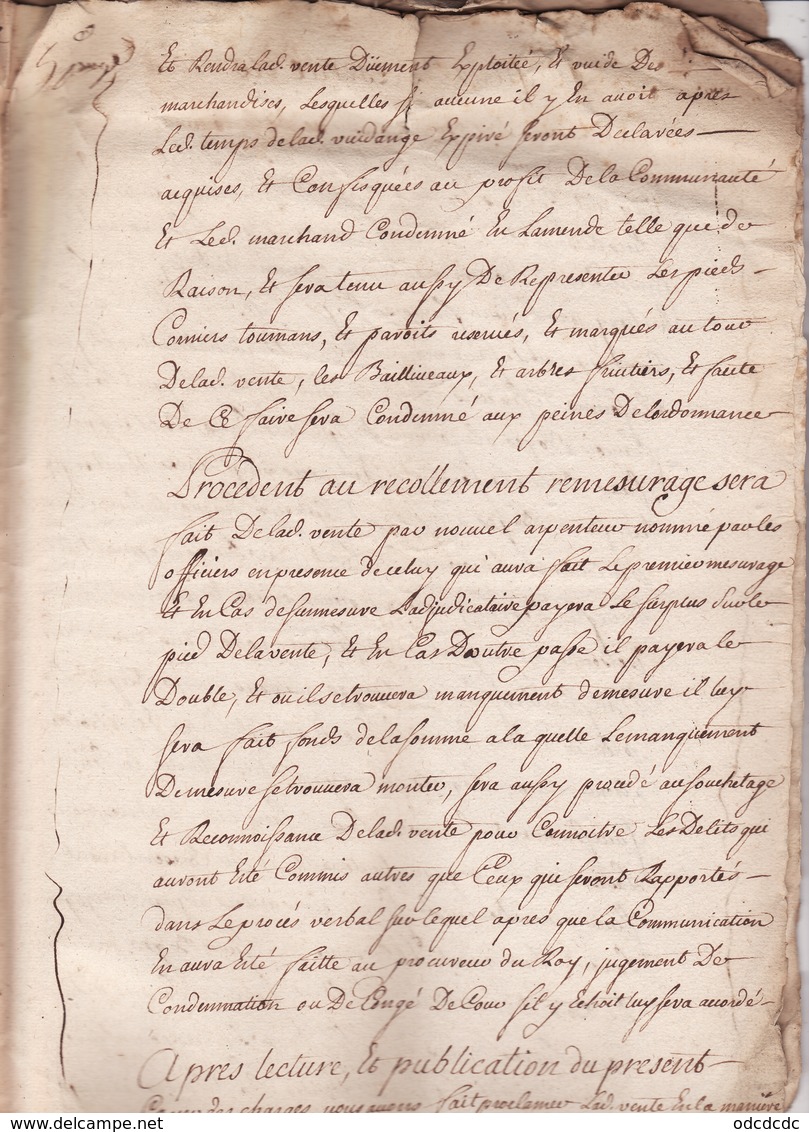 Et Rendra lad. vente Düement Exploitée, Et vuide Des
marchandises, Lesquelles si aucune il y En avoit apres
Led. temps de lad. vuidange Expiré seront Declarées —
acquises, Et Confisquées au profit De la Communauté
Et Led. marchand Condemné En Lamende telle que de
Raison, Et sera tenu aussy De Representer Les pieds —
Corniers tournans, Et parois reservés, Et marqués au tour
De lad. vente, les Bailliveaux, Et arbres fruitiers, Et faute
De Ce faire sera Condemné aux peines De lordonnance
Procedent au recollement remesurage sera
fait De lad. vente par nouvel arpenteur nommé par les
officiers en presence de celuy qui aura fait Le premier mesurage
Et En Cas de surmesure Ladjudicataire payera Le surplus sur le
pied De la vente, Et En Cas Doutre passe il payera le
Double, Et ou il se trouvera manquement de mesure il luy
sera fait fonds de la somme a la quelle Le manquement
De mesure se trouvera monter, sera aussy procedé au souchetage
Et Reconnoissance De lad. vente pour Connoitre Les Delits qui
auront Eté Commis autres que Ceux qui seront Rapportés —
dans Le procés verbal sur lequel apres que la Communication
En aura Eté faitte au procureur du Roy, jugement De
Condemnation ou De Congé De Cour sil y Echoit luy sera accordé —
Apres lecture, Et publication du present —
Cayer des charges nous avons fait proclamer Lad. vente En la maniere
odcdcdc